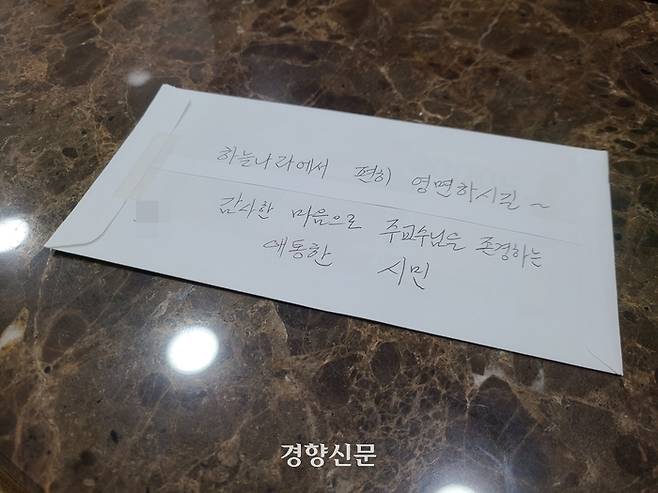 하늘나라에서 편히 영면하시길~
감사한 마음으로 주교수님을 존경하는
애통한 시민
경향신문